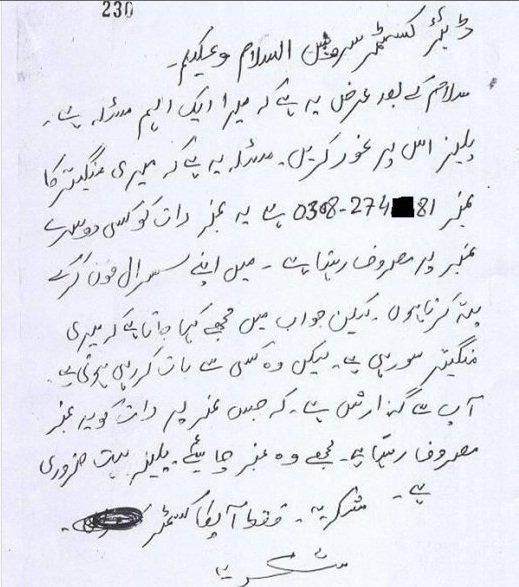 230
ڈیئر کسٹمر سروس السلام وعلیکم۔
سلام کے بعد عرض یہ ہے کہ میرا ایک اہم مسئلہ ہے۔
پلیز اس پر غور کریں۔ مسئلہ یہ ہے کہ میری منگیتر کا
نمبر 0308-274 81 ہے یہ نمبر رات کو کسی دوسرے
نمبر پر مصروف رہتا ہے۔ میں اپنے سسرال فون کرکے
پتہ کرتا ہوں۔ لیکن جواب میں مجھے کہا جاتا ہے کہ میری
منگیتر سو رہی ہے۔ لیکن وہ کسی سے بات کر رہی ہوتی ہے
آپ سے گزارش ہے۔ کہ جس نمبر پر رات کو یہ نمبر
مصروف رہتا ہے۔ مجھے وہ نمبر چاہیئے۔ پلیز بہت ضروری
ہے۔ شکریہ۔ فقط آپکا کسٹمر
شکریہ